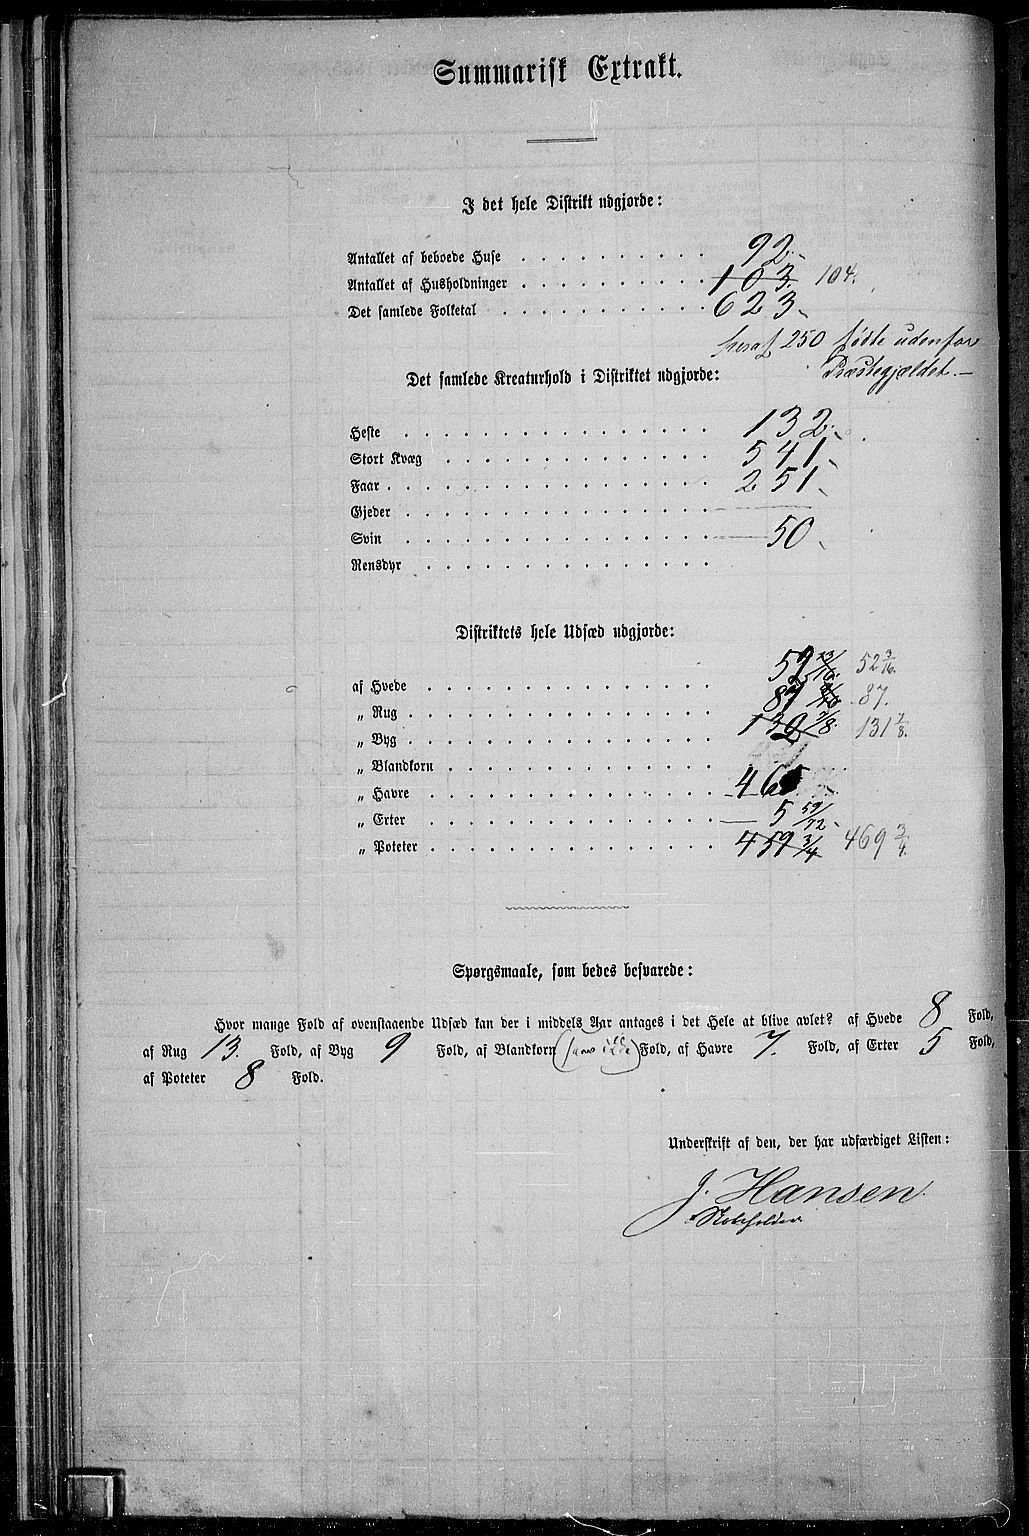 Summarisk Extrakt.
I det hele Distrikt udgjorde:
Antallet af beboede Huse . . . . . . . . . . 92.
Antallet af Husholdninger . . . . . . . . . . 103. 104.
Det samlede Folketal . . . . . . . . . . . 623.
heraf 250 fødte udenfor
Præstegjældet.—
Det samlede Kreaturhold i Distriktet udgjorde:
Heste . . . . . . . . . . . . . . . . 132.
Stort Kvæg . . . . . . . . . . . . . . 541.
Faar . . . . . . . . . . . . . . . . . 251.
Gjeder . . . . . . . . . . . . . . . . —
Svin . . . . . . . . . . . . . . . . 50
Rensdyr . . . . . . . . . . . . . . .
Distriktets hele Udsæd udgjorde:
af Hvede . . . . . . . . . . . . . . . 52 3/16.
„ Rug . . . . . . . . . . . . . . . . 87 87.
„ Byg . . . . . . . . . . . . . . . . 139 7/8. 131 7/8.
„ Blandkorn . . . . . . . . . . . . . .
„ Havre . . . . . . . . . . . . . . . 465
„ Erter . . . . . . . . . . . . . . . 5 59/72
„ Poteter . . . . . . . . . . . . . . . 459 3/4 469 3/4.
Spørgsmaale, som bedes besvarede:
Hvor mange Fold af ovenstaaende Udsæd kan der i middels Aar antages i det Hele at blive avlet? af Hvede 8 Fold,
af Rug 13. Fold, af Byg 9 Fold, af Blandkorn (saaes ikke) Fold, af Havre 7. Fold, af Erter 5 Fold,
af Poteter 8 Fold.
Underskrift af den, der har udfærdiget Listen:
J. Hansen.